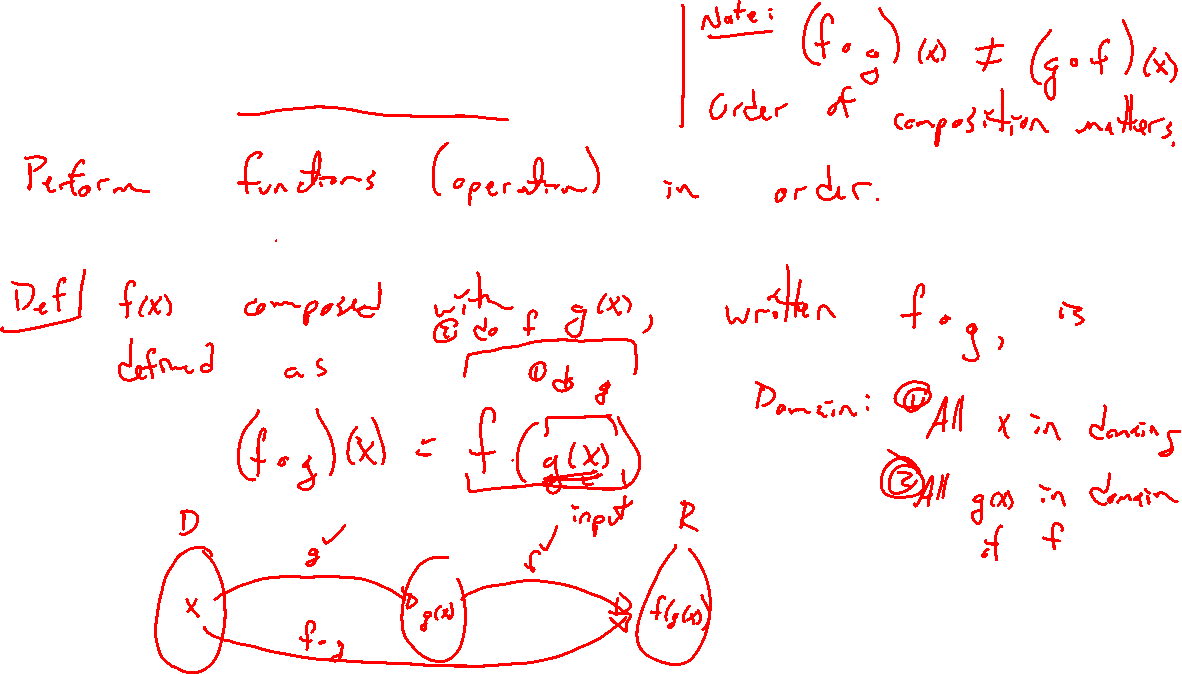 Note: (f∘g)(x) ≠ (g∘f)(x)
Order of composition matters.
Perform functions (operation) in order.
Def f(x) composed with g(x), written f∘g, is
② do f
defined as
① do g
Domain: ① All x in domain g
(f∘g)(x) = f(g(x))
② All g(x) in domain
of f
input
D R
g ✓ f ✓
x g(x) f(g(x))
f∘g